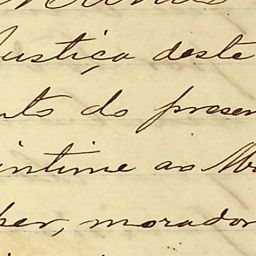 Justiça deste
do presen
intime ao M
morador